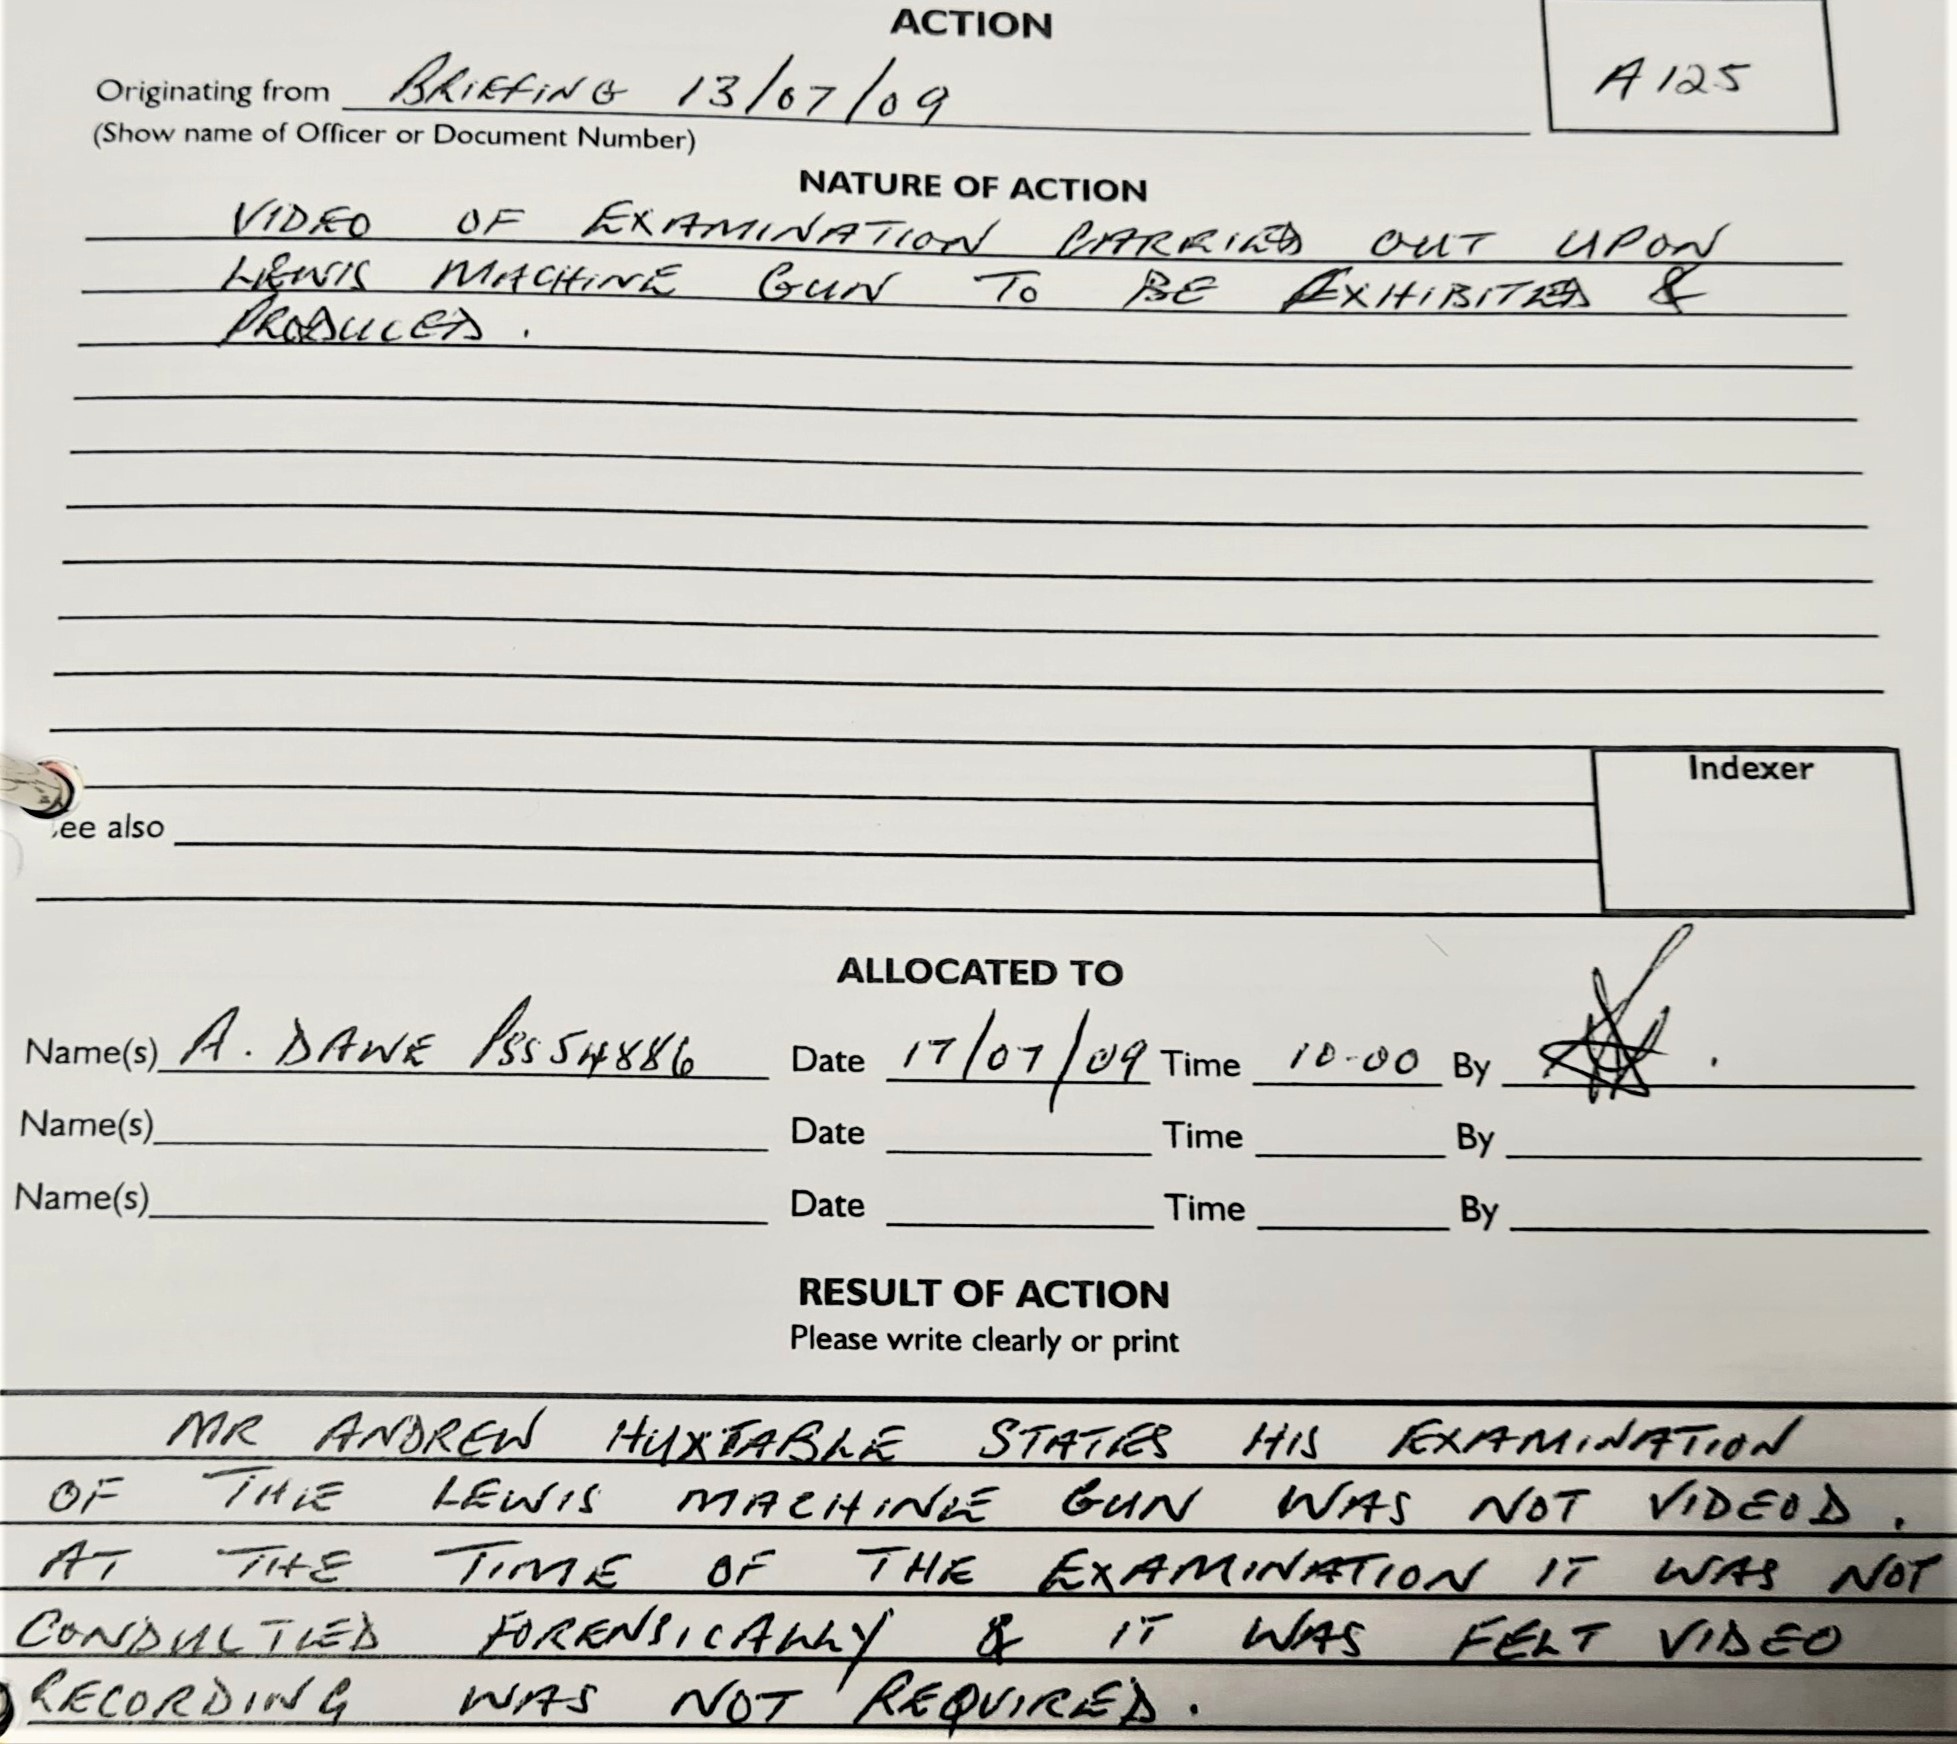 ACTION
A125
Originating from BRIEFING 13/07/09
(Show name of Officer or Document Number)
NATURE OF ACTION
VIDEO OF EXAMINATION CARRIED OUT UPON
LEWIS MACHINE GUN TO BE EXHIBITED &
PRODUCED.
Indexer
ee also
ALLOCATED TO
Name(s) A. DAWE PSS 54886 Date 17/07/09 Time 10-00 By
Name(s) Date Time By
Name(s) Date Time By
RESULT OF ACTION
Please write clearly or print
MR ANDREW HUXTABLE STATES HIS EXAMINATION
OF THE LEWIS MACHINE GUN WAS NOT VIDEOD.
AT THE TIME OF THE EXAMINATION IT WAS NOT
CONDUCTED FORENSICALLY & IT WAS FELT VIDEO
RECORDING WAS NOT REQUIRED.